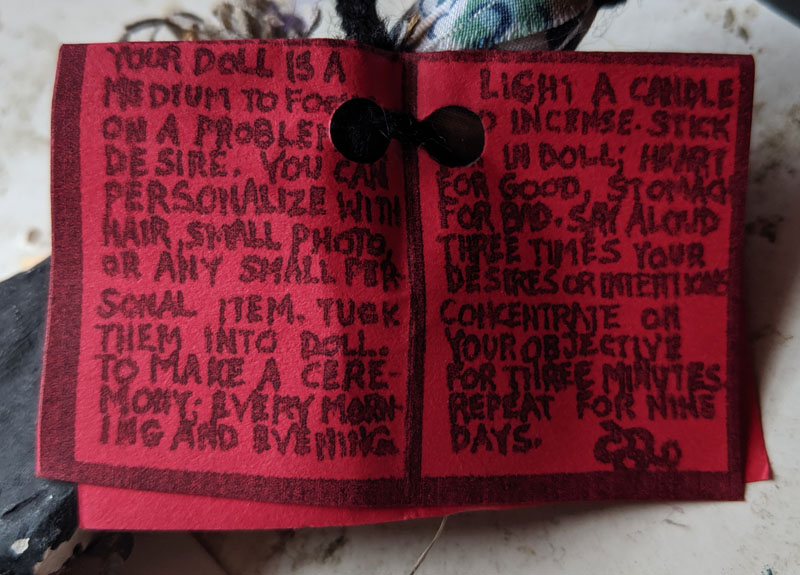 YOUR DOLL IS A
MEDIUM TO
ON A
DESIRE. YOU CAN
PERSONALIZE WITH
HAIR, SMALL PHOTO,
OR ANY SMALL PER-
SONAL ITEM. TUCK
THEM INTO DOLL.
TO MAKE A CERE-
MONY; EVERY MORN-
ING AND EVENING.
LIGHT A CANDLE
INCENSE. STICK
IN DOLL; HEART
FOR GOOD, STOMACH
FOR BAD. SAY ALOUD
THREE TIMES YOUR
DESIRES OR INTENTIONS
CONCENTRATE ON
YOUR OBJECTIVE
FOR THREE MINUTES.
REPEAT FOR NINE
DAYS.